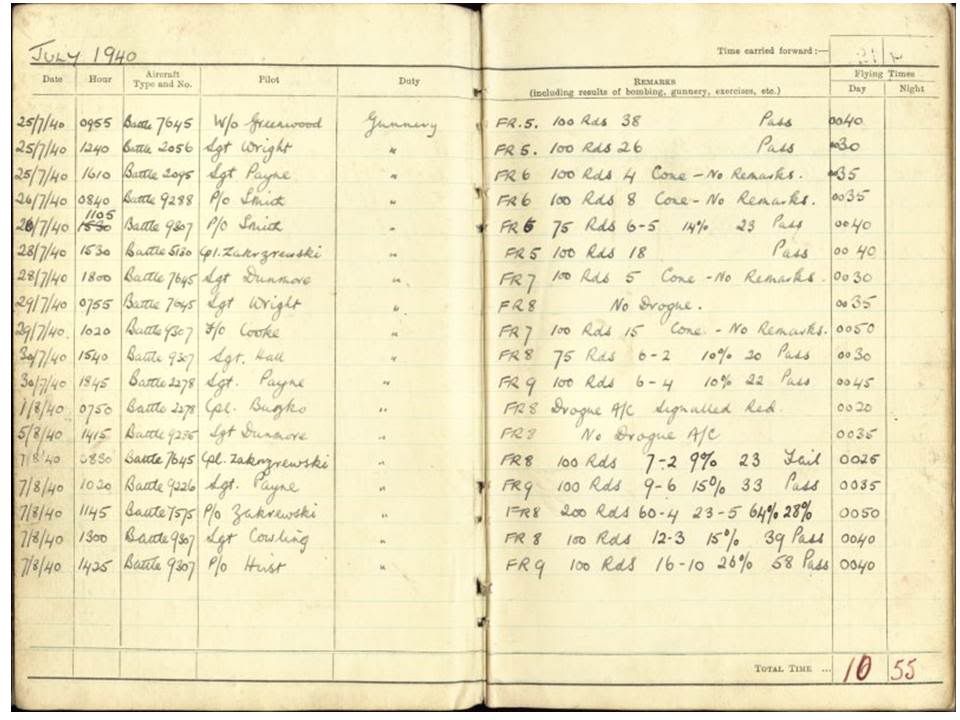 JULY 1940
Time carried forward:—
Date Hour Aircraft Type and No. Pilot Duty REMARKS (including results of bombing, gunnery, exercises, etc.) Flying Times Day Night
25/7/40 0955 Battle 7645 W/o Greenwood Gunnery FR.5. 100 Rds 38 Pass 0040
25/7/40 1240 Battle 2056 Sgt Wright " FR 5. 100 Rds 26 Pass 0030
25/7/40 1610 Battle 2095 Sgt Payne " FR 6 100 Rds 4 Cone - No Remarks. 0035
26/7/40 0840 Battle 9288 P/o Smith " FR 6 100 Rds 8 Cone - No Remarks. 0035
26/7/40 1105 1530 Battle 9307 P/o Smith " FR 6 75 Rds 6-5 14% 23 Pass 0040
28/7/40 1530 Battle 5130 Cpl. Zakrzrewski " FR 5 100 Rds 18 Pass 0040
28/7/40 1800 Battle 7645 Sgt Dunmore " FR 7 100 Rds 5 Cone - No Remarks. 0030
29/7/40 0755 Battle 7045 Sgt Wright " FR 8 No Drogue. 0035
29/7/40 1020 Battle 9307 F/o Cooke " FR 7 100 Rds 15 Cone - No Remarks. 0050
30/7/40 1540 Battle 9307 Sgt. Hall " FR 8 75 Rds 6-2 10% 20 Pass 0030
30/7/40 1845 Battle 2278 Sgt. Payne " FR 9 100 Rds 6-4 10% 22 Pass 0045
1/8/40 0750 Battle 2278 Cpl. Buszko " FR 8 Drogue A/C Signalled Red. 0020
5/8/40 1415 Battle 9235 Sgt Dunmore " FR 8 No Drogue A/C 0035
7/8/40 0830 Battle 7645 Cpl. Zakrzrewski " FR 8 100 Rds 7-2 9% 23 Fail 0025
7/8/40 1020 Battle 9226 Sgt. Payne " FR 9 100 Rds 9-6 15% 33 Pass 0035
7/8/40 1145 Battle 7575 P/o Zakrewski " FR 8 200 Rds 60-4 23-5 64% 28% 0050
7/8/40 1300 Battle 9307 Sgt Cowling " FR 8 100 Rds 12-3 15% 39 Pass 0040
7/8/40 1425 Battle 9307 P/o Hirst " FR 9 100 Rds 16-10 26% 58 Pass 0040
TOTAL TIME ... 10 55